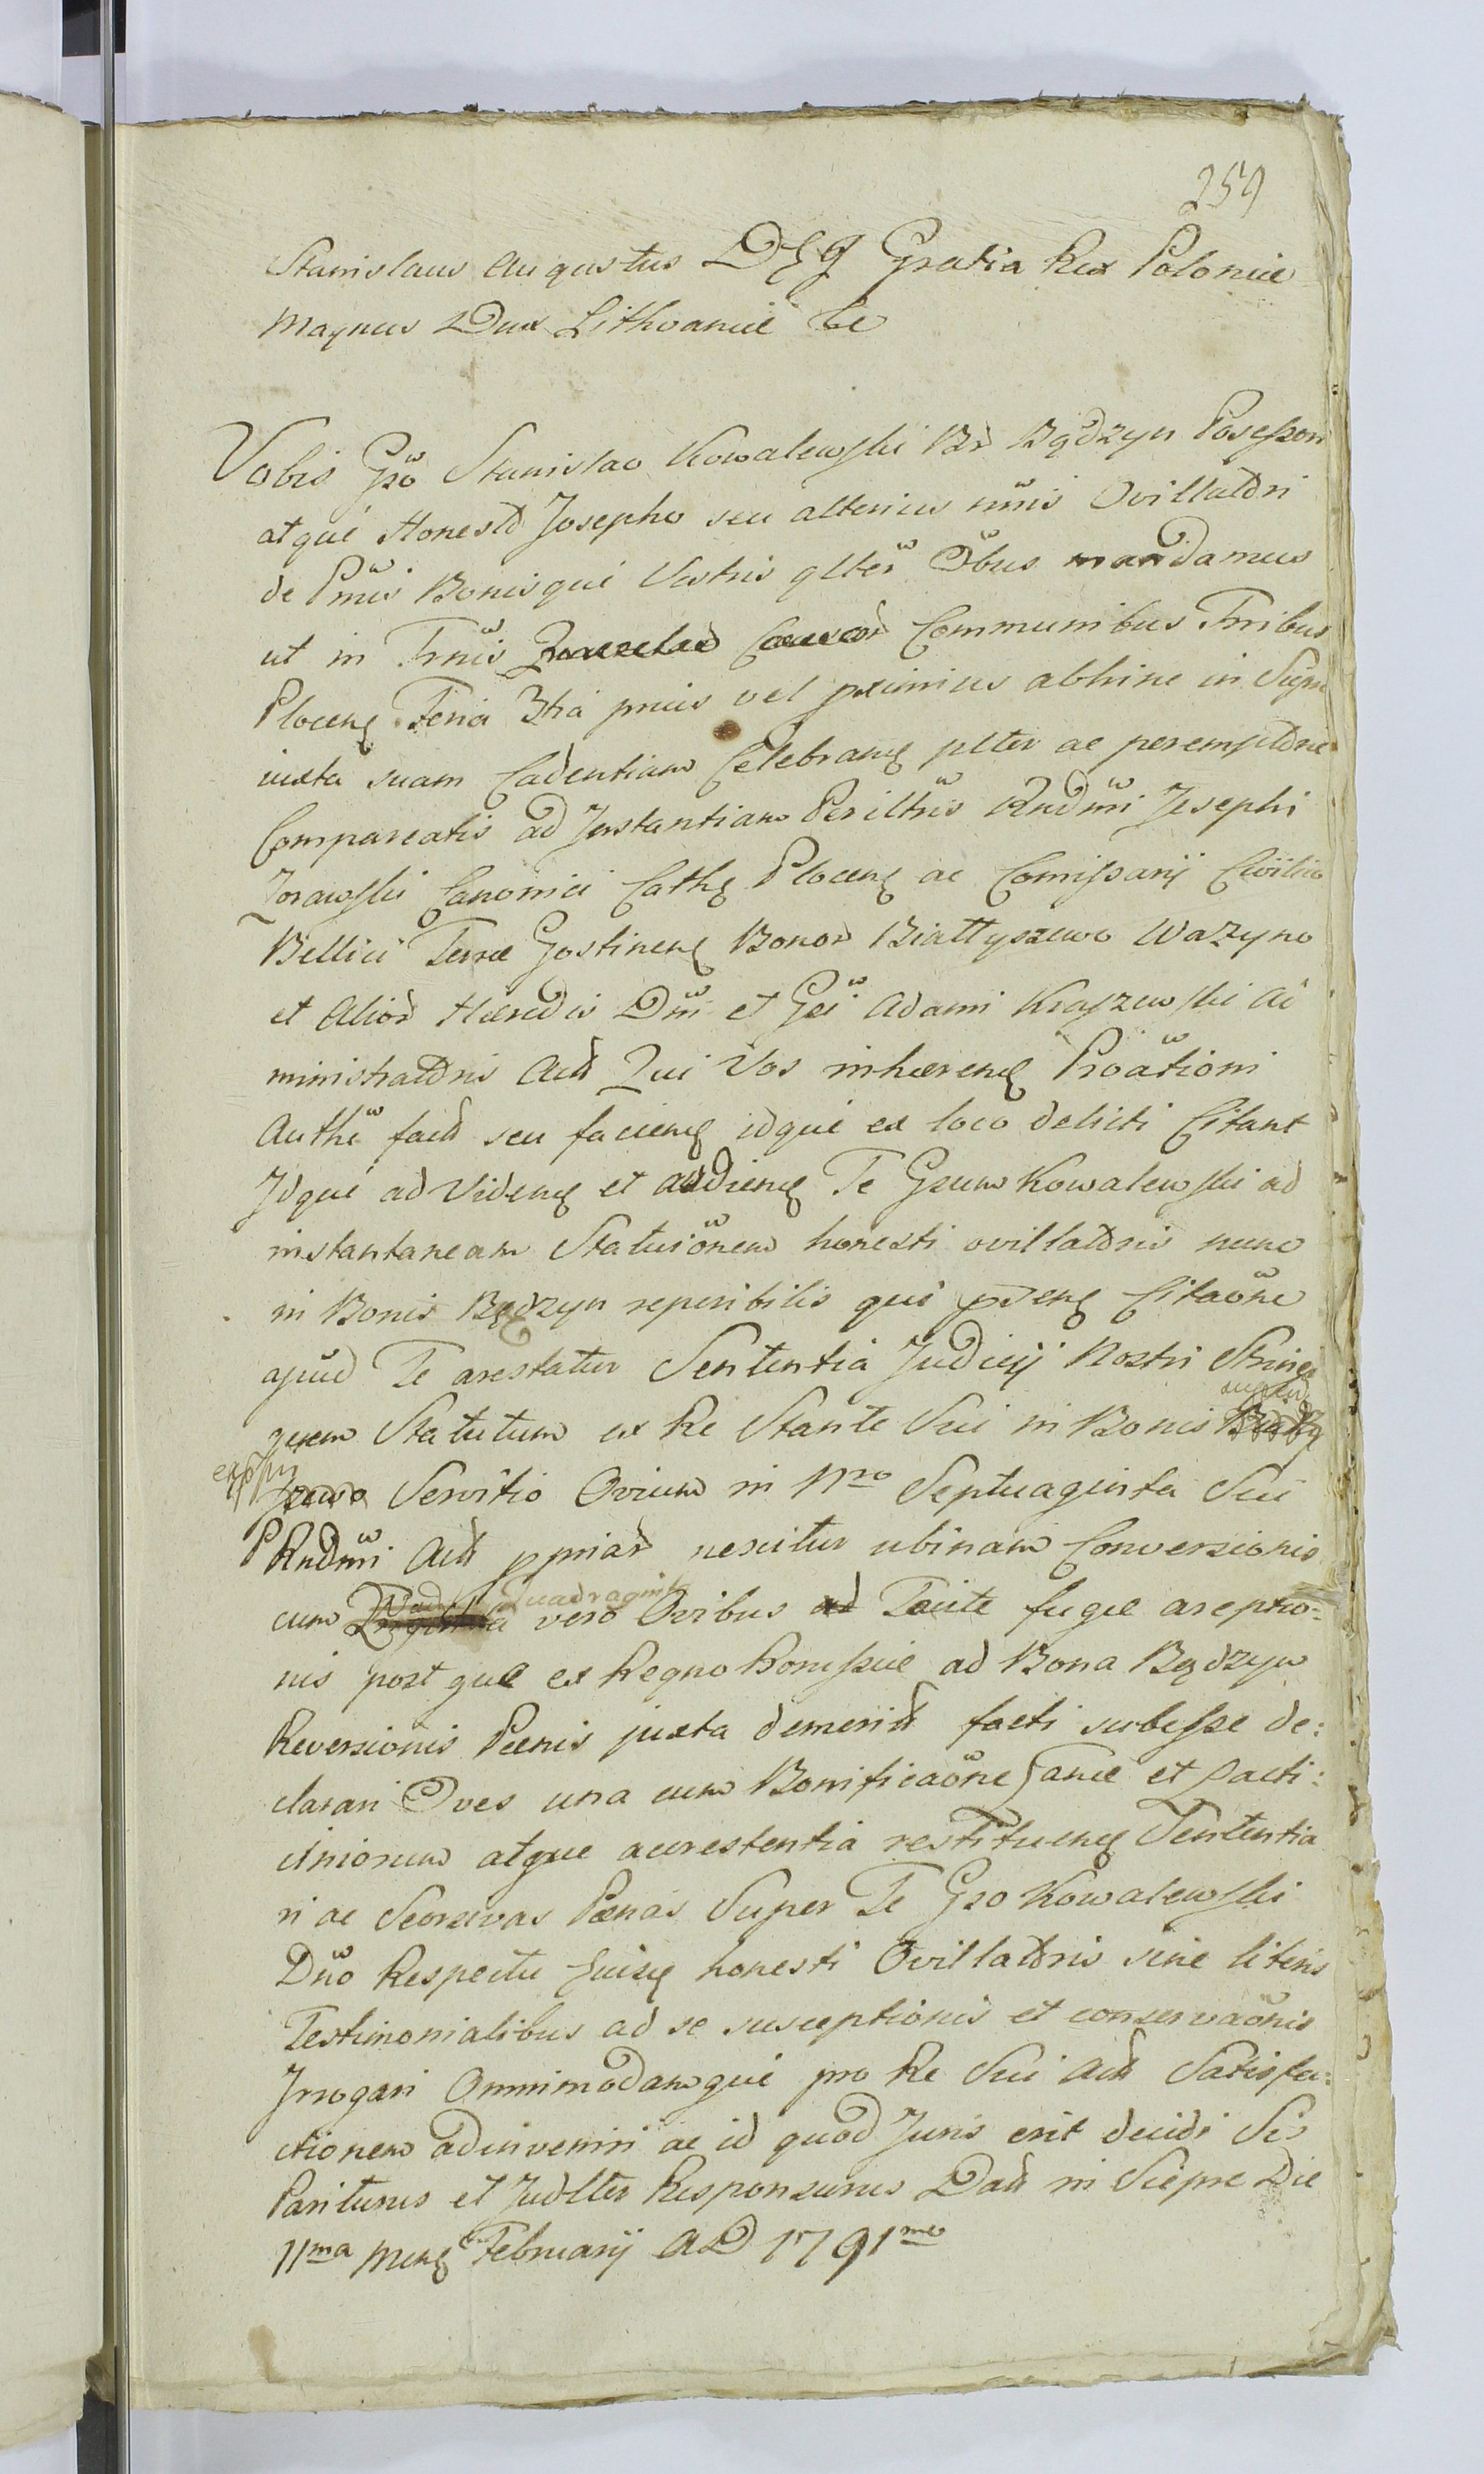 259
Stanislaus Augustus DEI Gratia Rex Poloniæ
Magnus Dux Lithvaniæ &c
Vobis Gso Stanislao Kowalewski Br Bądzyn Posessori
atque Honesto Josepho seu alterius nnis Ovillatori
de Pnnis Bonisque Vestris qlter Obus mandamus
ut in Trnis Communibus Trribus
Plocens Feria 3tia prius vel pximius abhinc in Siepre
iuxta suam Cadentiam Celebrans plter ac peremptorie
Compareatis ad Instantiam Perilltris Rndmi Josephi
Zorawski Canonici Cathe Plocens ac Comissarij Civilio
Bellici Terræ Gostinens Bonor Białłyszewo Wazyno
et Alior Hæredis Dni et Gsi Adami Kraszewski Ad
ministratoris Actt Qui Vos inhærens Proationi
Authe factt seu faciens idque ex loco delicti Citant
Idque ad Videns et audiens Te Gsum Kowalewski ad
instantaneam Statuionem honesti ovillatoris nunc
in Bonis Bądzyn reperibilis qui pdens Citaone
apud Te arestatur Sententia Judicij Nostri Stringi
quem Statutum ex Re Stante Sui in Bonis
Servitio Ovium in Nro Septuaginta Sui
P Rndmi Actt ppriar nescitur ubinam Conversionis
cum Quadraginta vero Ovibus Tacite fugæ areptio=
nis post quæ ex Regno Borussiæ ad Bona Bądzyn
Reversionis Pænis juxta demeritt facti subesse de:
clarari Oves una cum Bonificaone Lanæ et Lacti:
ciniorum atque accrestentia restituens Sententia
ri ac Seorsivas Pænas Super Te Gso Kowalewski
Dno Respectu hujus honesti Ovillatoris sine literis
Testimonialibus ad se susceptionis et conservaonis
Irrogari Omnimodamque pro Re Sui Actt Satisfa:
ctionem adinveniri ac id quod Juris erit decidi Sis
Pariturus et Judlter Responsurus Datt in Siepre Die
11ma Mens Februarij AD 1791mo